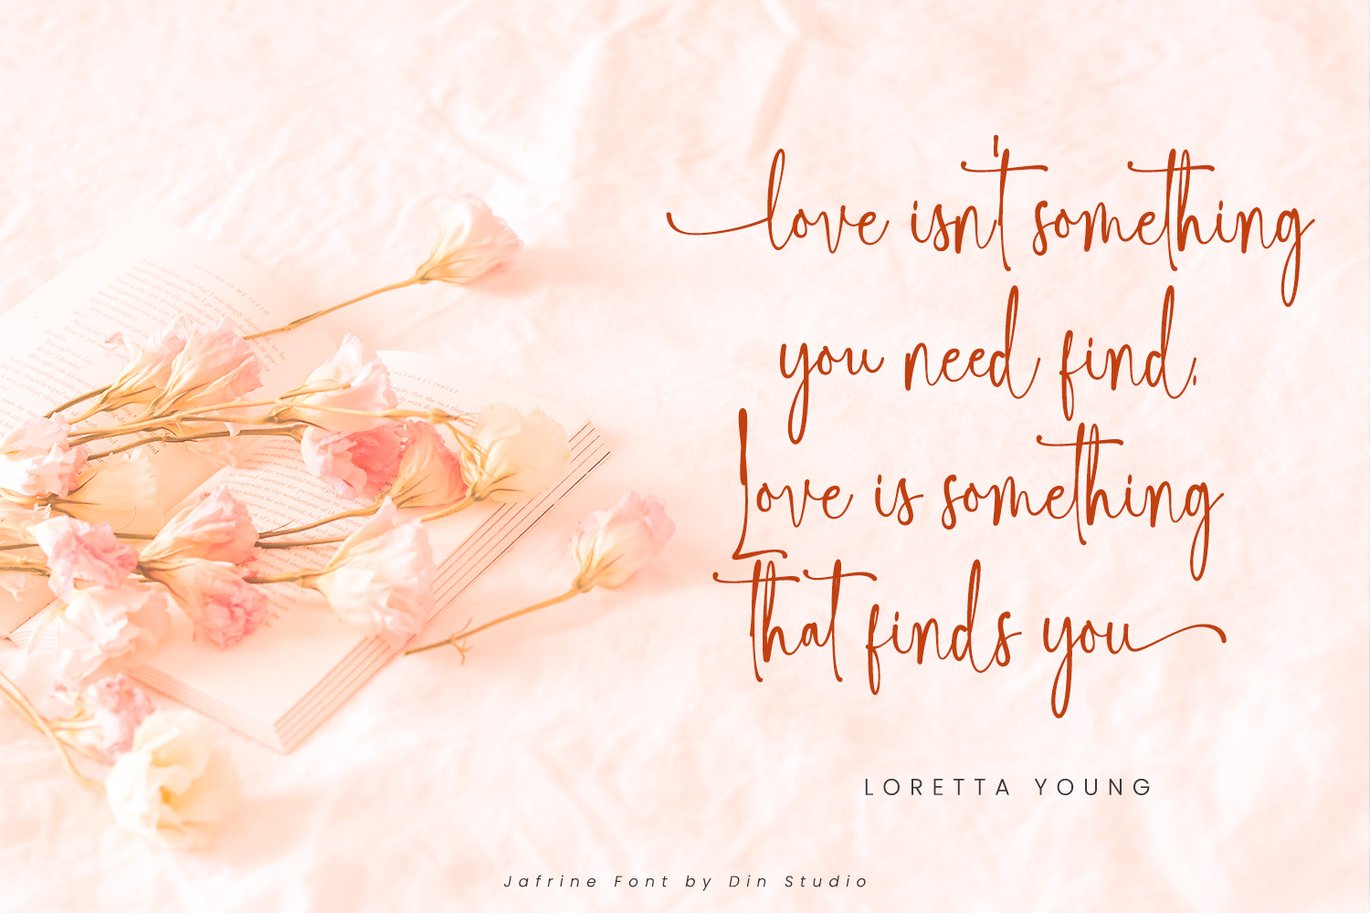 love isn't something
you need find;
Love is something
that finds you
LORETTA YOUNG
Jafrine Font by Din Studio